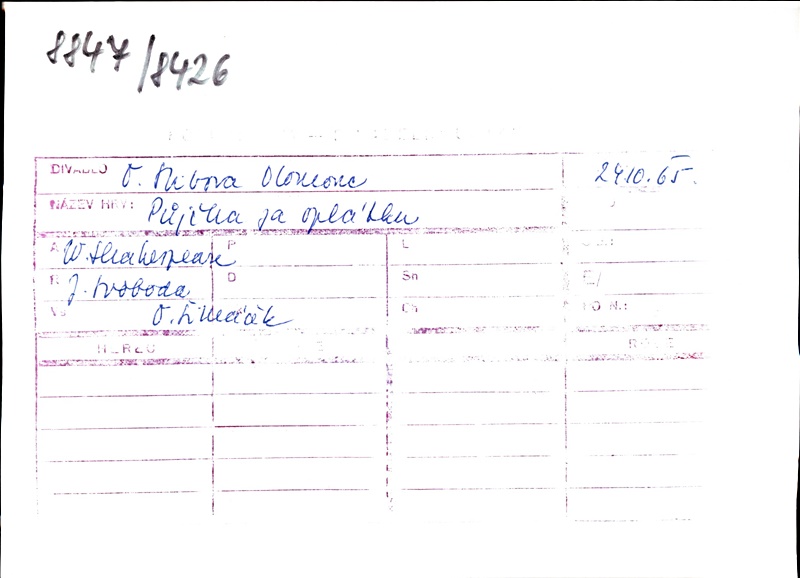 8847/8426
DIVADLO O. Stibora Olomouc 24.10.65.
NÁZEV HRY: Půjčka za oplátku
A W. Shakespeare P L
R J. Svoboda D Sn
O. Šimáček Ch FO N.:
HEREC ROLE